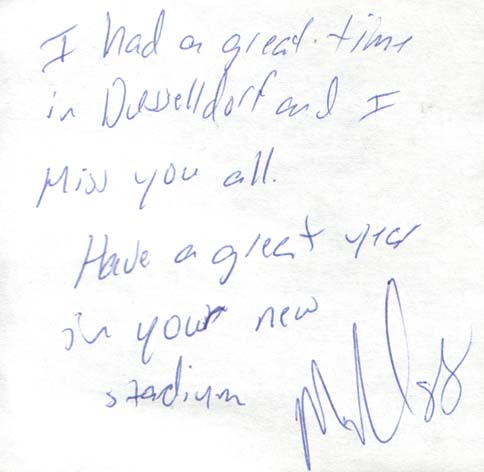 I had a great time
in Dusselldorf and I
Miss you all.
Have a great year
in your new
stadium